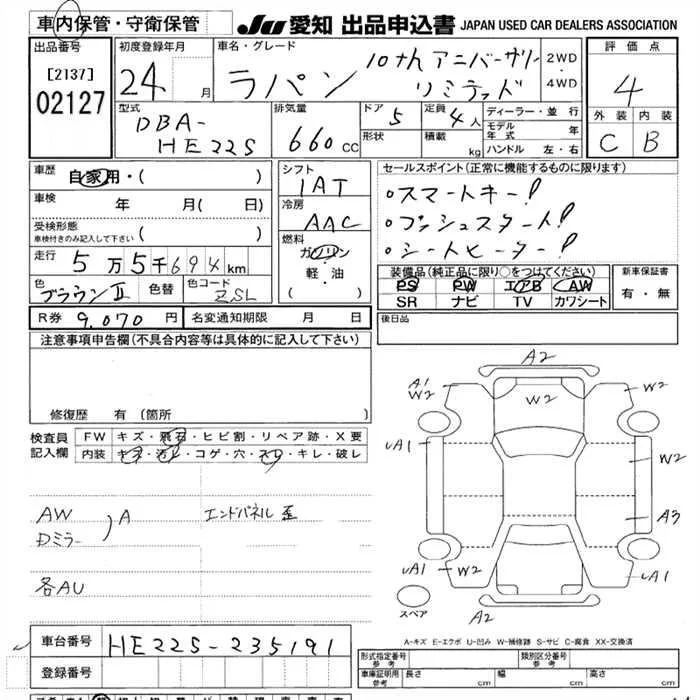 車内保管・守衛保管
JU 愛知 出品申込書 JAPAN USED CAR DEALERS ASSOCIATION
出品番号
[2137]
02127
初度登録年月
24 月
車名・グレード
ラパン 10th アニバーサリー
リミテッド
2WD
・
4WD
評価点
4
外装 内装
C B
型式
DBA-
HE22S
排気量
660 cc
ドア 5
形状
定員 4人
積載 kg
ディーラー・並行
モデル年式 年
ハンドル 左・右
車歴 自家用・( )
車検 年 月( 日)
受検形態
車検付きのみ記入して下さい ( )
走行 5万5千694km
色 ブラウンⅡ 色替 色コード ZSL
シフト
1AT
冷房
AAC
燃料
ガソリン
軽・油
( )
セールスポイント(正常に機能するものに限ります)
・スマートキー!
・プッシュスタート!
・シートヒーター!
装備品(純正品に限り○をつけてください)
PS PW エアB AW
SR ナビ TV カワシート
新車保証書
有・無
R券 9,070 円 名変通知期限 月 日
後日品
注意事項申告欄(不具合内容等は具体的に記入して下さい)
修復歴 有(箇所 )
検査員
記入欄
FW キズ・飛石・ヒビ割・リペア跡・X要
内装 キズ・汚れ・コゲ・穴・スレ・キレ・破レ
AW
Dミラー
) A
エンドパネル歪
各AU
A2
A1
W2
W2
W2
A1
W2
A3
A1
W2
A1
A2
スペア
A-キズ E-エクボ U-凹み W-補修跡 S-サビ C-腐食 XX-交換済
車台番号 HE22S-235191
登録番号
形式指定番号
参考
類別区分番号
参考
車庫証明用
参考
長さ cm 幅 cm 高さ cm